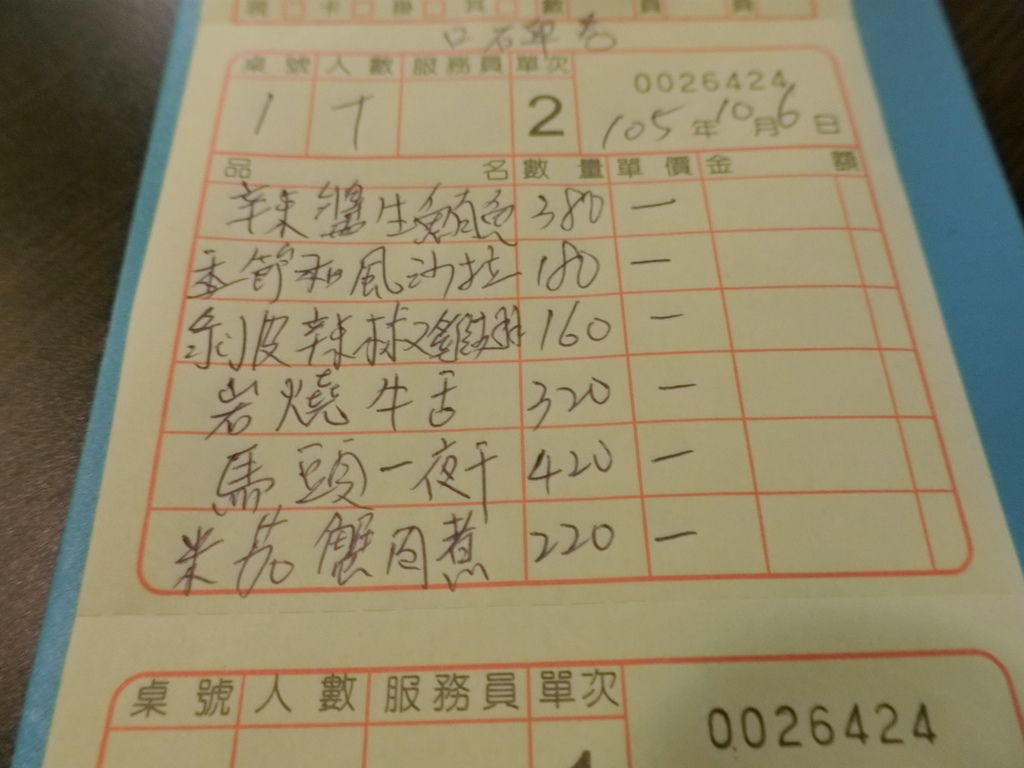 桌號 人數 服務員 單次
0026424
1 十 2 105年10月6日
品名 數量 單價 金額
辣醬生鮪魚 380 一
季節和風沙拉 180 一
剝皮辣椒雞翅 160 一
岩燒牛舌 320 一
馬頭一夜干 420 一
米茄蟹肉煮 220 一
桌號 人數 服務員 單次
0026424